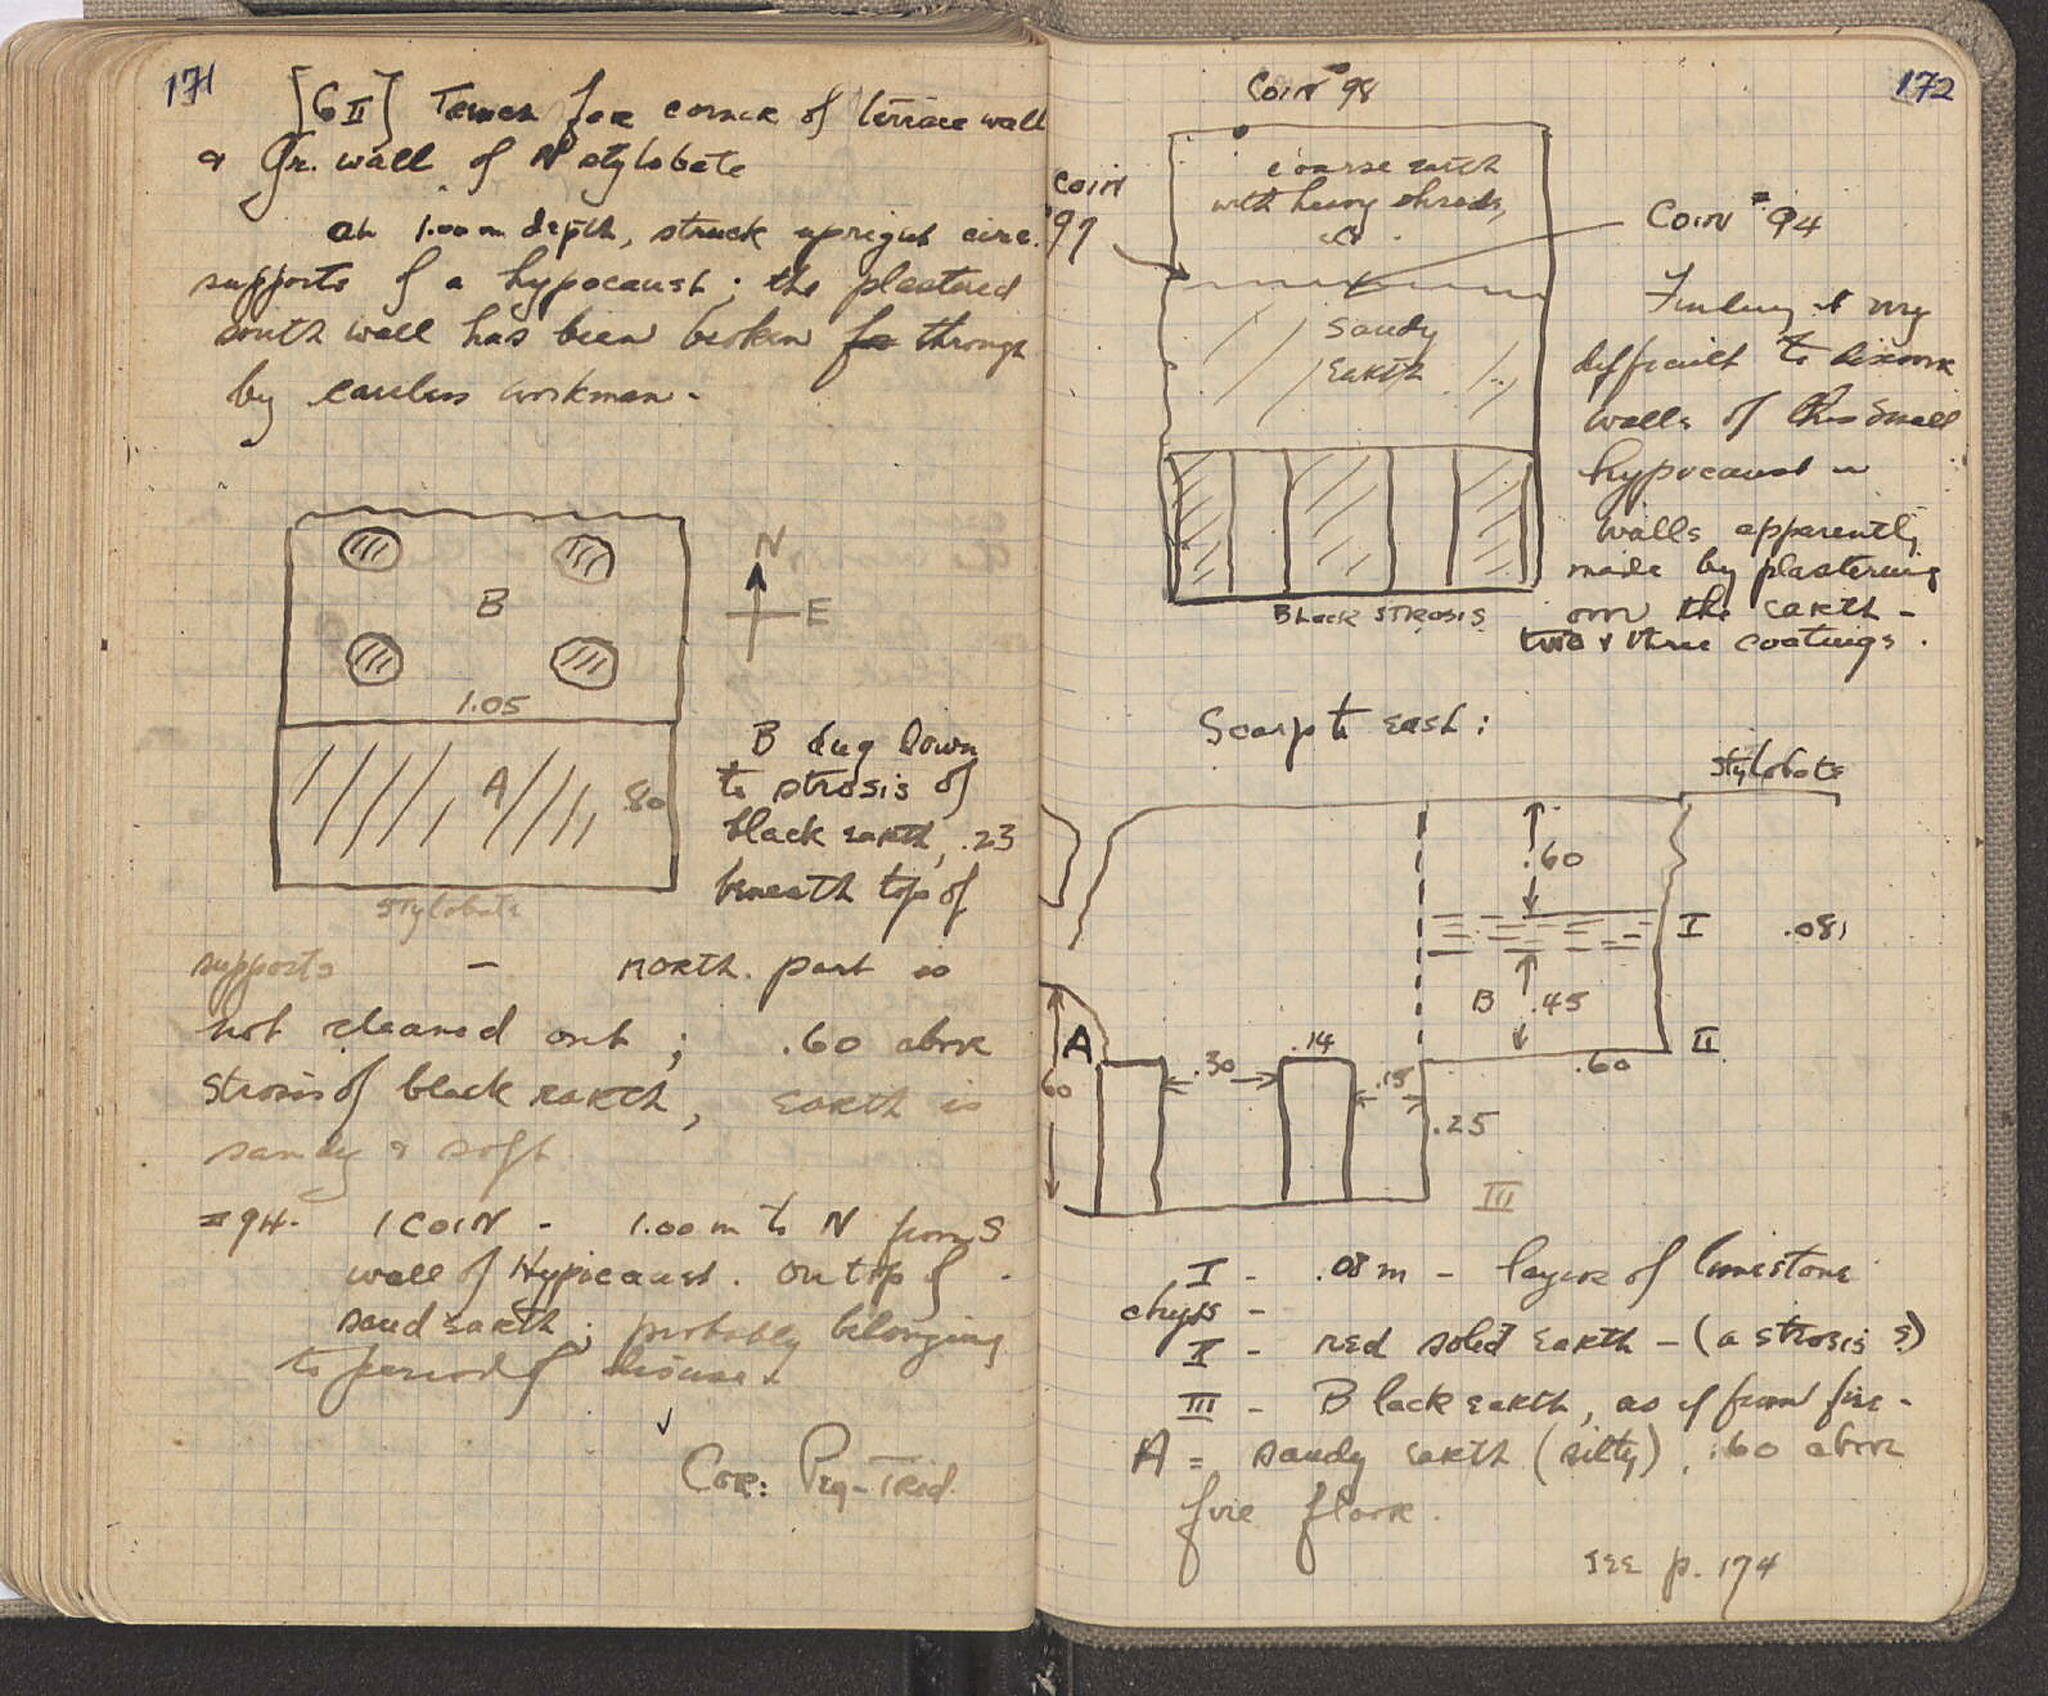 171
[6 II] Trench for corner of terrace wall
& Gr. wall of N stylobate
at 1.00 m depth, struck upright circ.
supports of a hypocaust; the plastered
south wall has been broken through
by careless workman.
N
E
B
1.05
A
.80
stylobate
B dug down
to strosis of
black earth, .23
beneath top of
supports - north part is
not cleaned out; .60 above
strosis of black earth, earth is
sandy & soft
#94. 1 COIN - 1.00 m to N from S
wall of Hypicaust. On top of
sand earth; probably belonging
to period of disuse.
Cor: Peg-Trid.
172
COIN #98
coarse earth
with heavy shreds,
COIN
97
COIN #94
sandy
earth
Black STROSIS
Finding it very
difficult to discover
walls of this small
hypocaust -
walls apparently
made by plastering
over the earth -
two & three coatings.
Scarp to east:
stylobate
.60
I
.081
B .45
II
.60
A
.60
.30
.14
.15
.25
III
I - .08 m - layer of limestone
chips -
II - red solid earth - (a strosis ?)
III - Black earth, as if from fire -
A = sandy earth (silty), .60 above
fire floor.
SEE p. 174